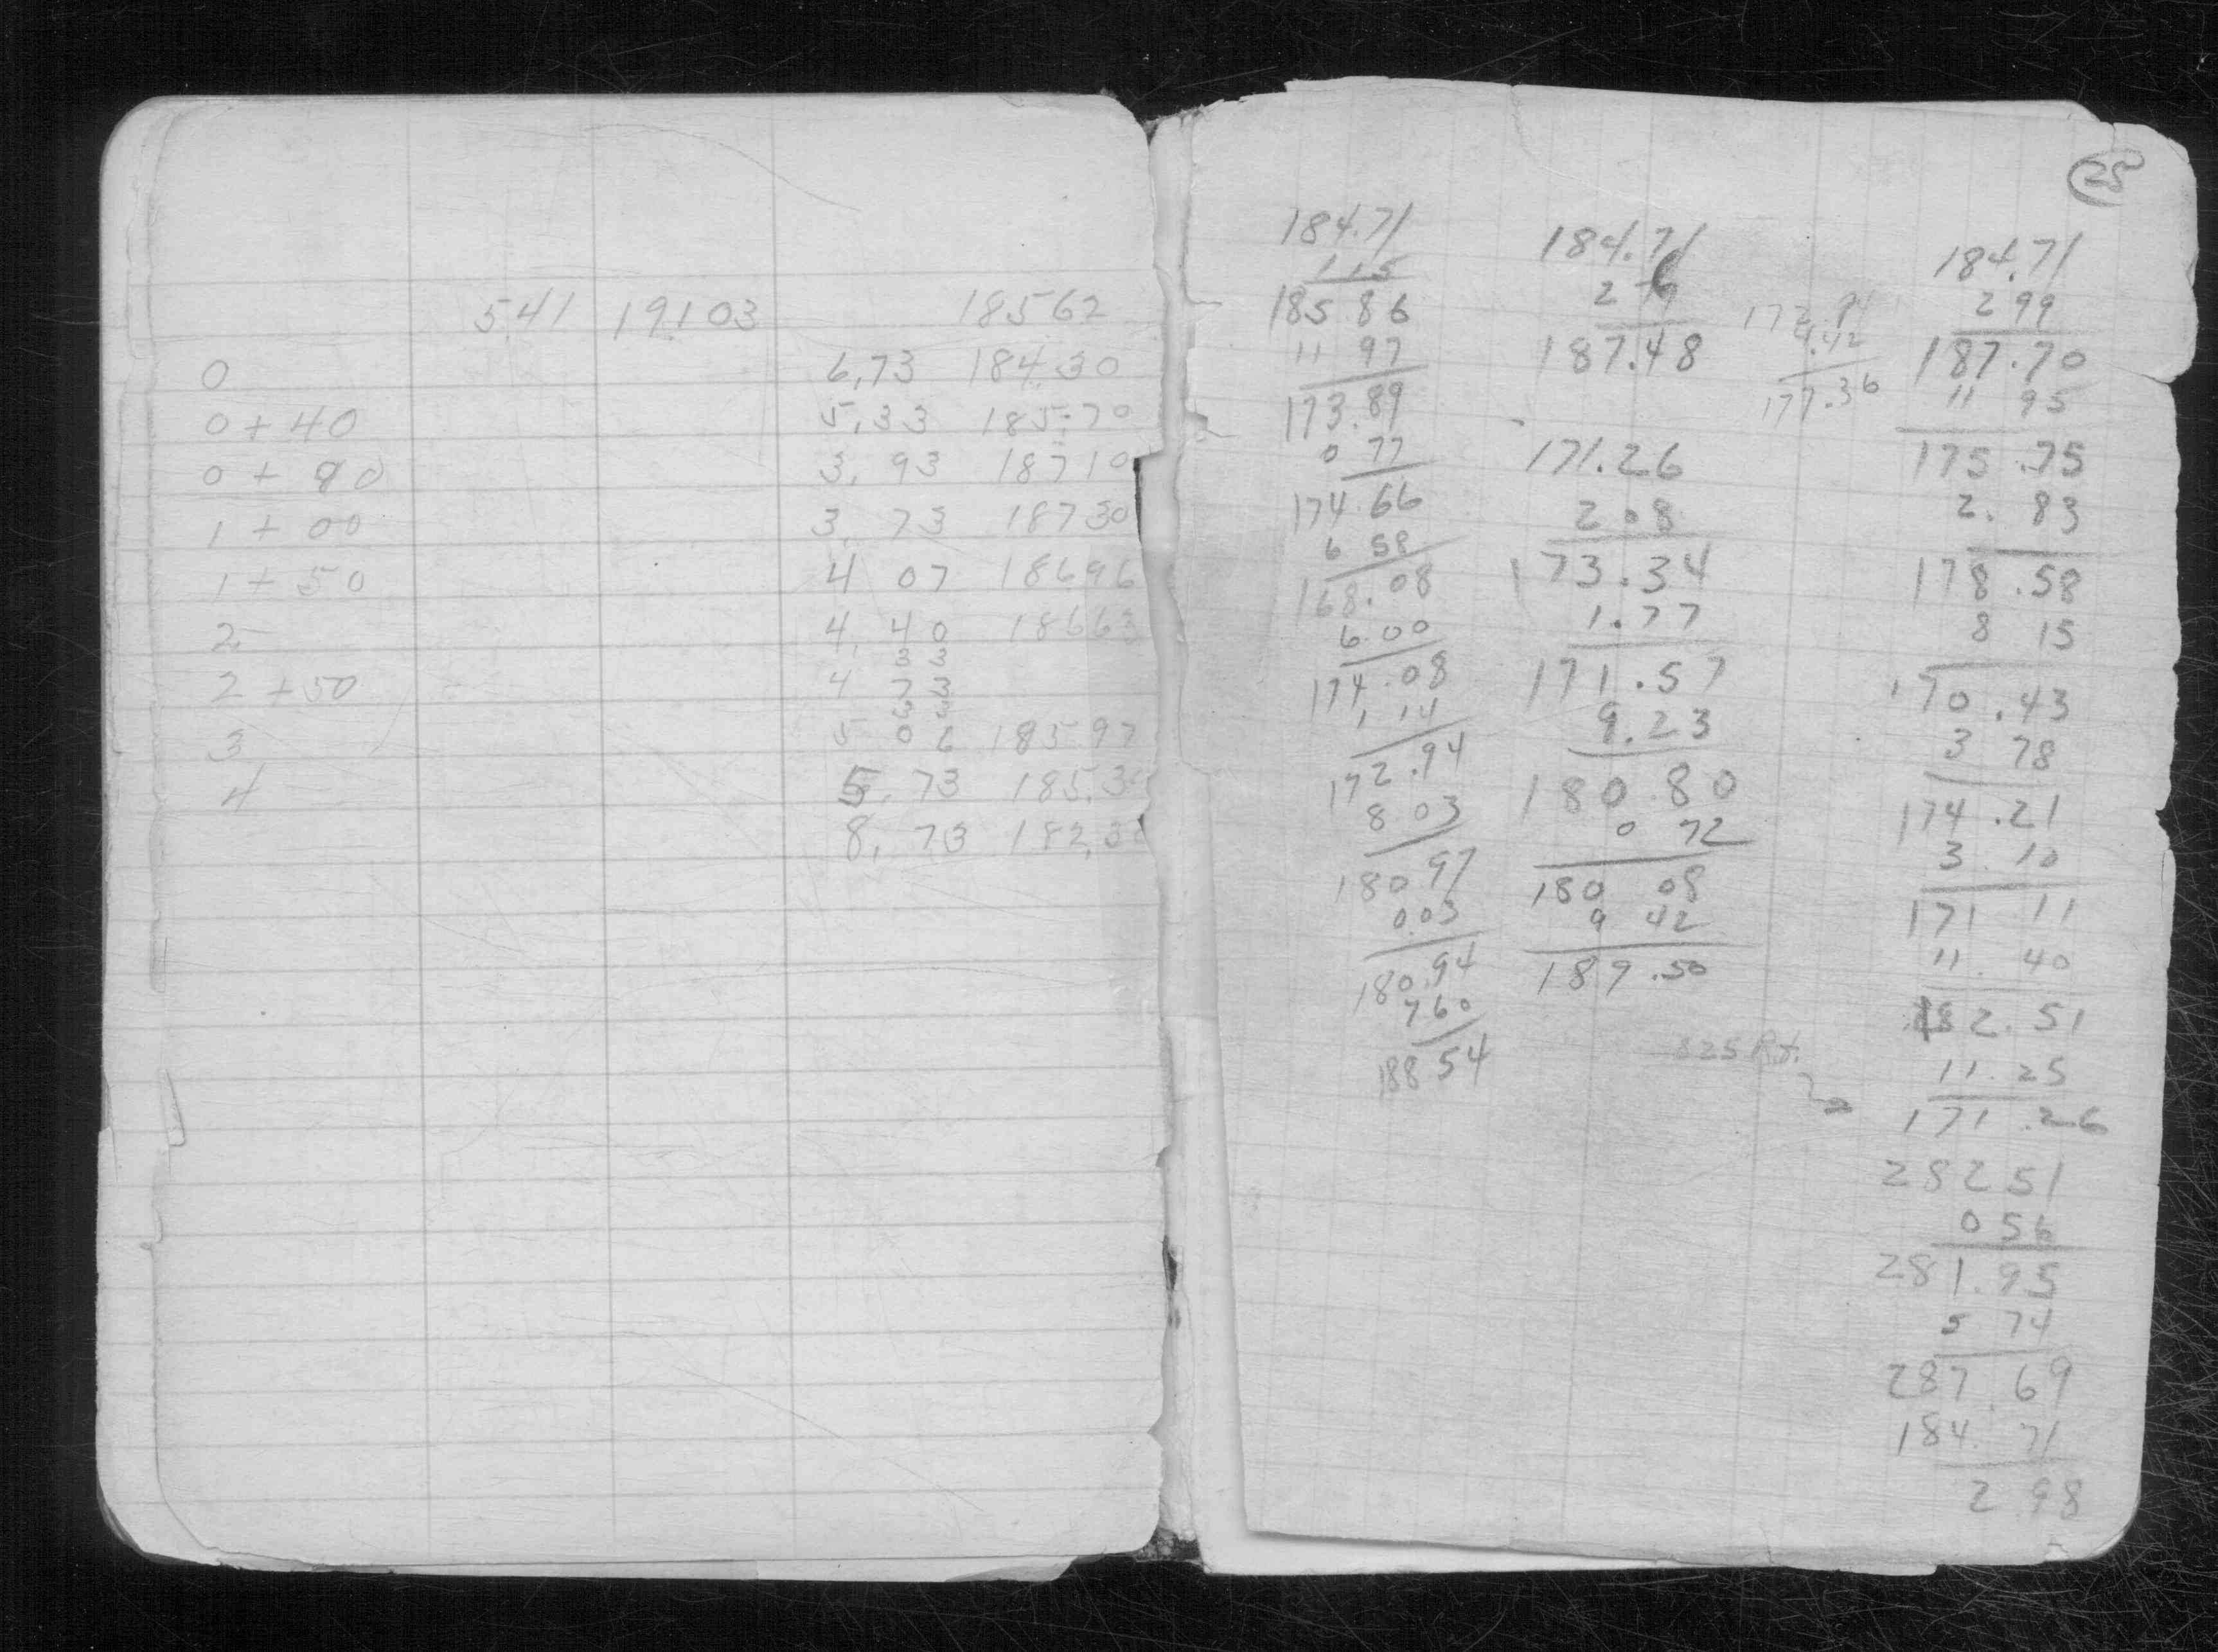 541 191.03 18562
0 6,73 184.30
0 + 40 5,33 185.70
0 + 90 3, 93 18710
1 + 00 3, 73 18730
1 + 50 4 07 18696
2 4, 40 18663
3 3
2 + 50 4 73
3 3
3 5 06 18597
4 5, 73 185.3
8, 73 182,3
25
184.71
1 15
185 86
11 97
173.89
0 77
174.66
6 58
168.08
6.00
174.08
1 14
172.94
8 03
180 97
0.03
180.94
7.60
188 54
184.71
187.48
171.26
2 08
173.34
1.77
171.57
9.23
180.80
0 72
180 08
9 42
189.50
172.94
4.42
177.36
825 Rt.
184.71
2 99
187.70
11 95
175.75
2. 83
178.58
8 15
170.43
3 78
174.21
3.10
171 11
11. 40
182.51
11.25
171.26
282 51
0 56
281.95
5 74
287.69
184.71
2 98